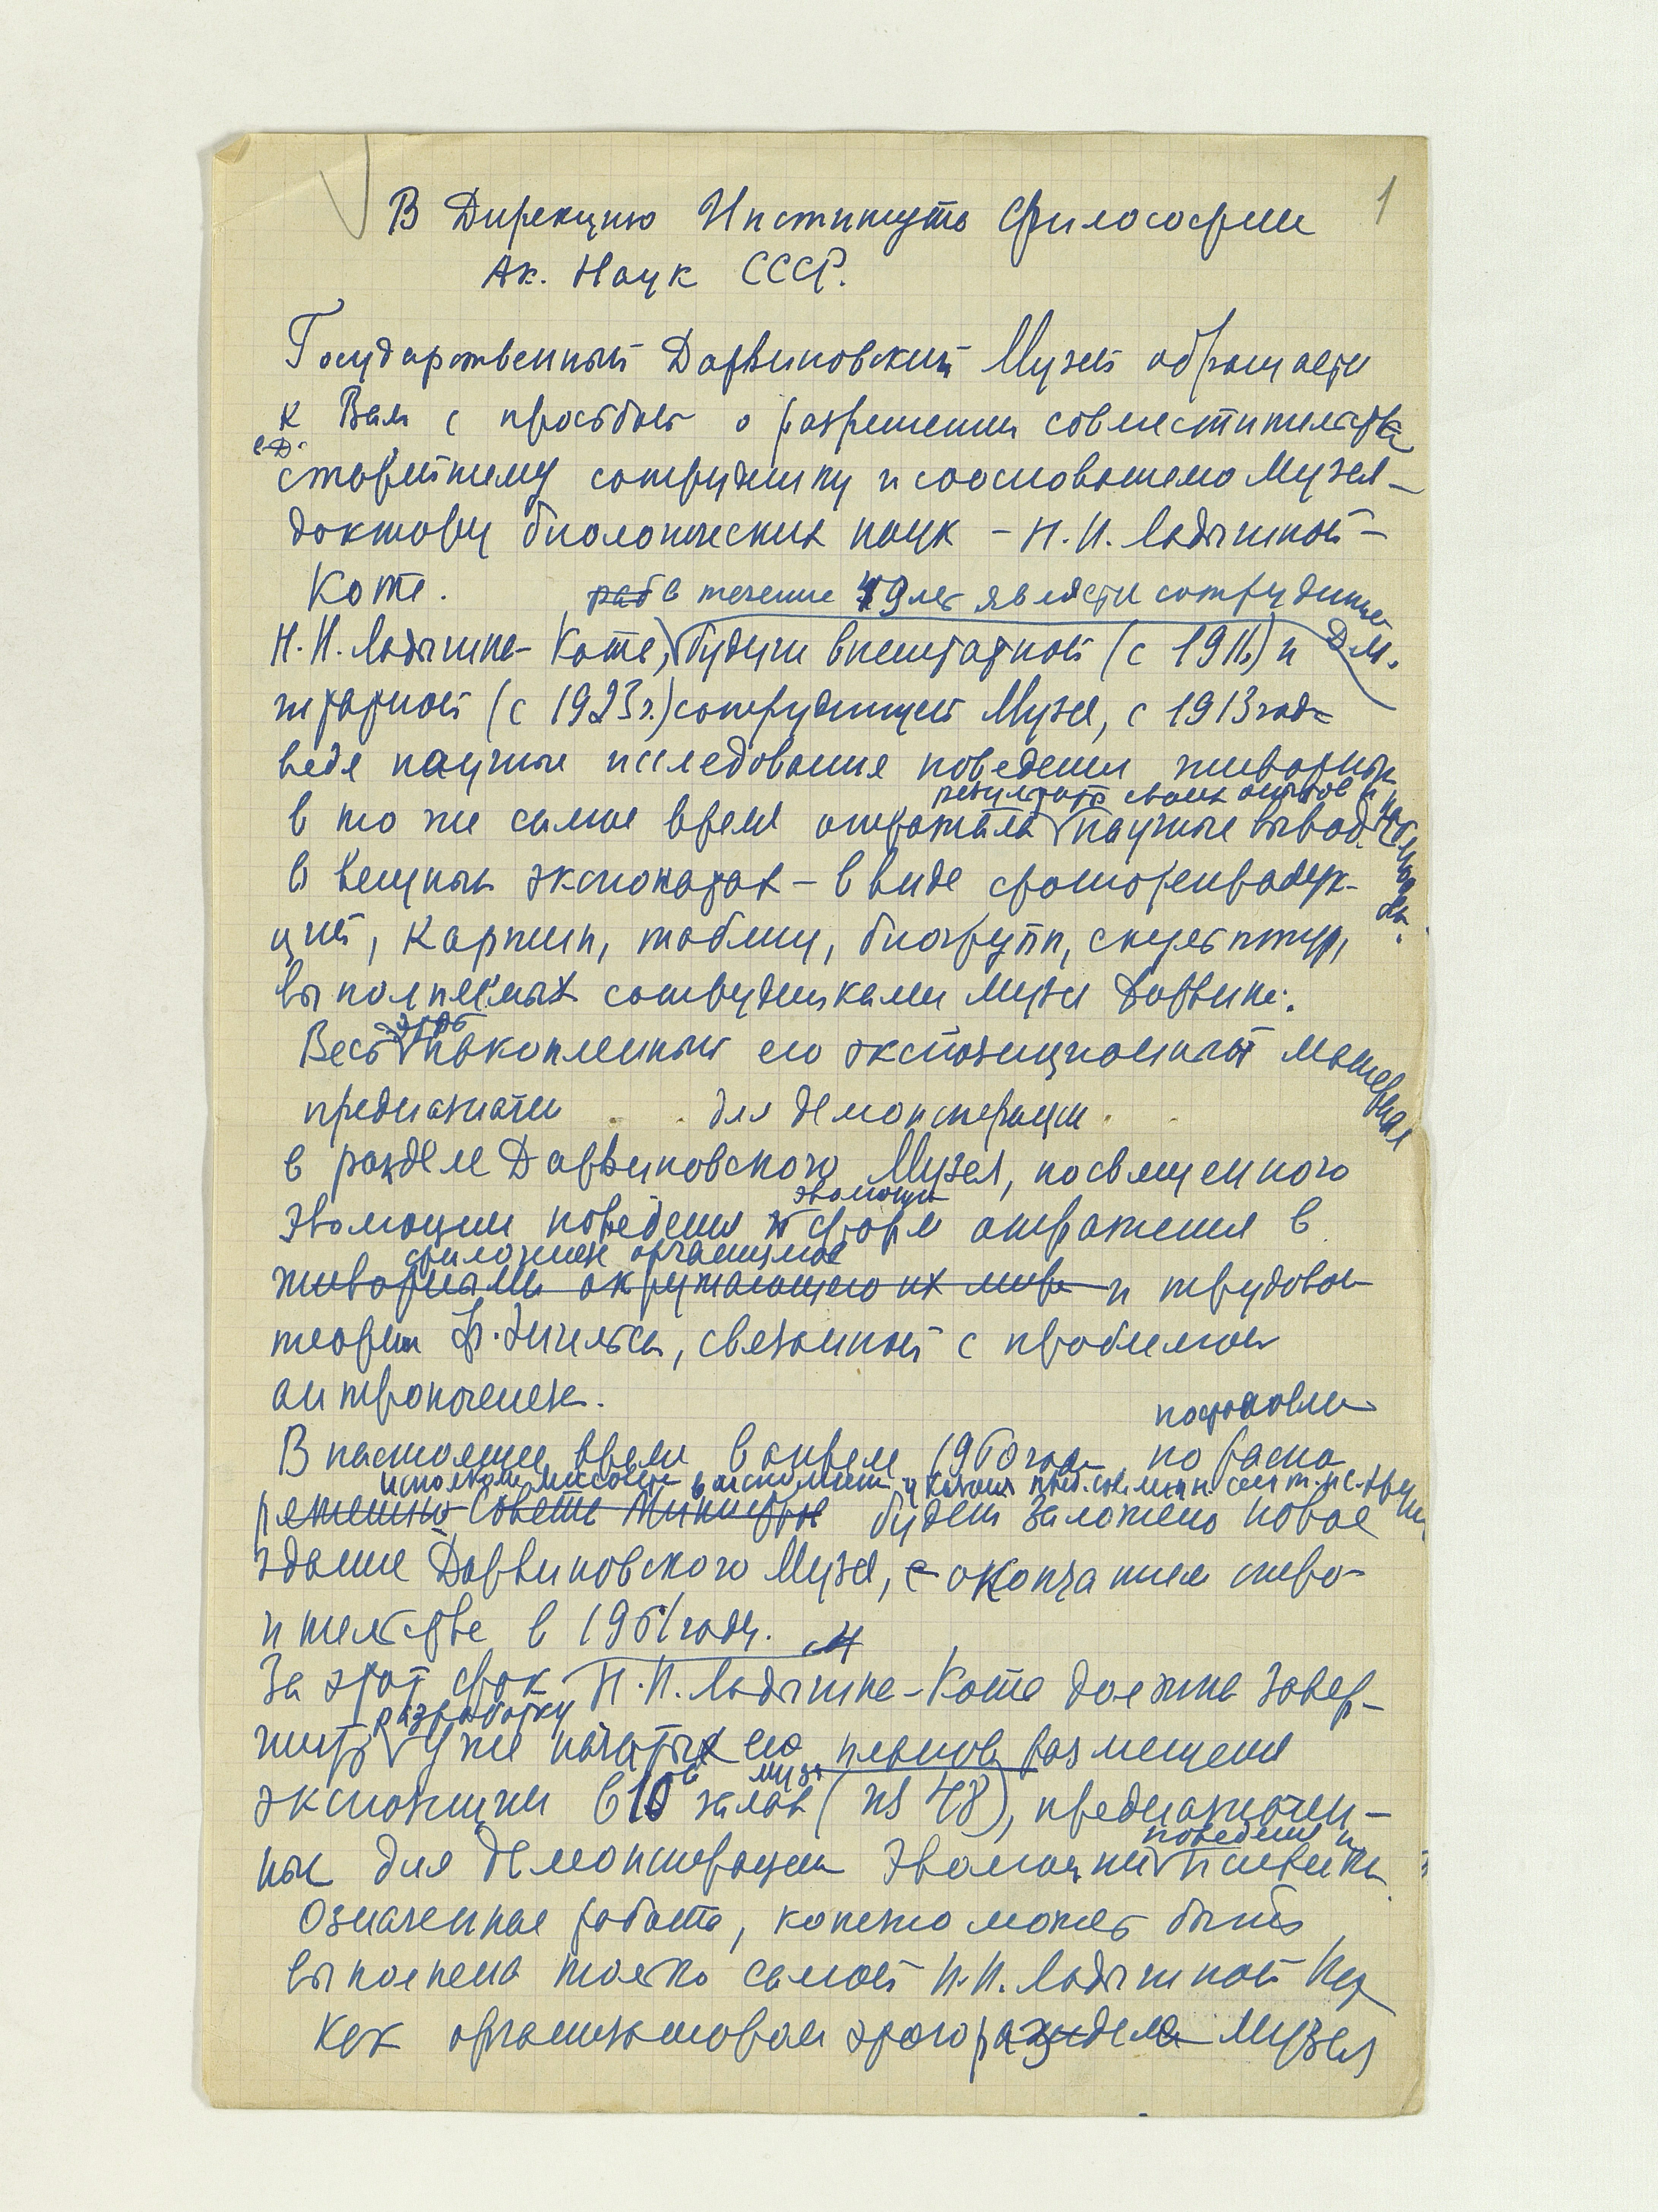 1
В Дирекцию Института Философии
Ак. Наук СССР.
Государственный Дарвиновский Музей обращается
к Вам с просьбой о разрешении совместительства
старейшему сотруднику и сооснователю Музея –
доктору биологических наук – Н. Н. Ладыгиной –
Котс.
раб в течение 49 лет является сотрудницей
Д.М.
Н. Н. Ладыгина-Котс, будучи внештатной (с 1911) и
штатной (с 1923 г.) сотрудницей Музея, с 1913 года
ведя научные исследования поведения животных
результаты своих опытов и
в то же самое время отражала научные выводы
в вещных экспонатах – в виде фоторепродук-
ций, картин, таблиц, биогрупп, скульптур,
выполненных сотрудниками Музея Дарвина.
этот
Весь накопленный ею экспозиционный материал
предназначен для демонстрации
в разделе Дарвиновского Музея, посвященного
эволюции
эволюции поведения и форм отражения в
филогенезе организмов
животными окружающего их мира и трудовой
теории Ф. Энгельса, связанной с проблемой
антропогенеза.
постановле
В настоящее время в апреле 1960 года по распо
исполкома Моссовета
решению Совета Министров будет заложено новое
здание Дарвиновского Музея, с окончанием строи-
тельства в 1961 году.
За этот срок Н. Н. Ладыгина-Котс должна завер-
разработку
шить уже начатых ею планов размещения
музея
экспозиции в 10 залах (из 48), предназначен-
поведения и
ных для демонстрации эволюции психики
Означенная работа, конечно может быть
выполнена только самой Н. Н. Ладыгиной Котс
как организатором этого раздела Музея